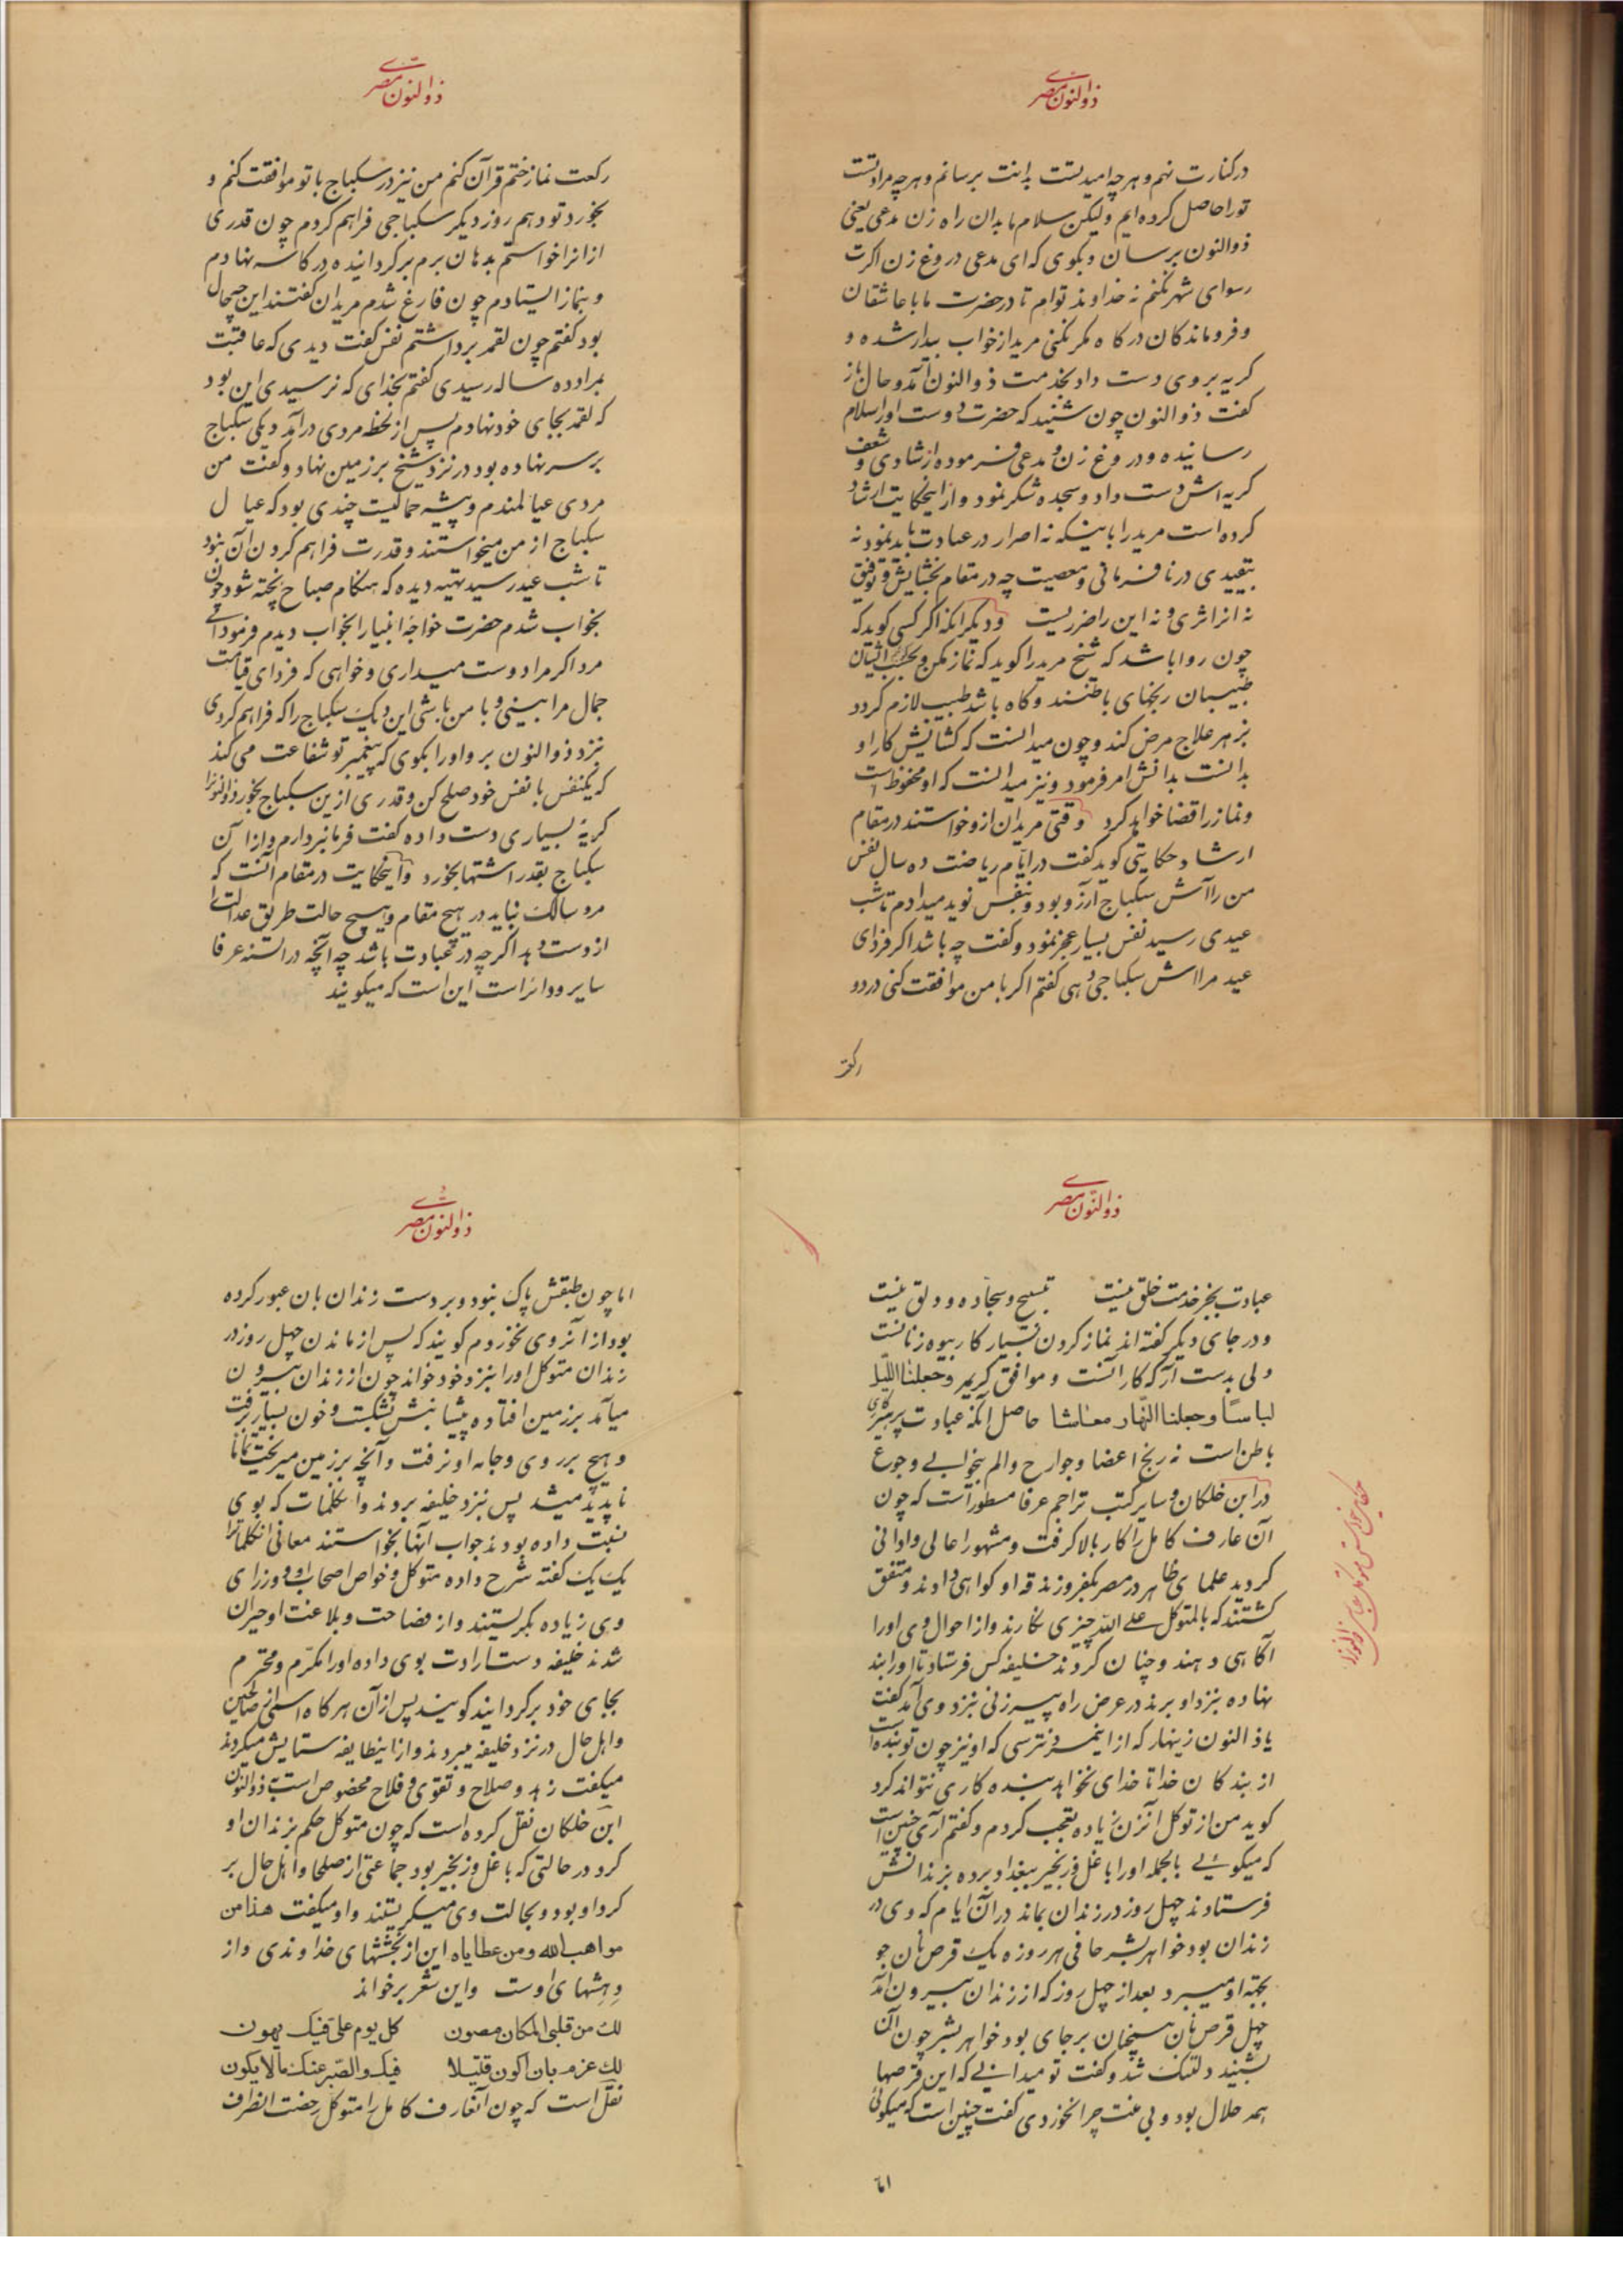 ذوالنون مصری
در کنارت نهم و هرچه امید تست بدانت برسانم و هرچه مراد تست
تو را حاصل کرده‌ایم ولیکن سلام ما بدان راه زن مدعی یعنی
ذوالنون برسان و بگوی که ای مدعی دروغ زن اگرت
رسوای شهر نکنم نه خداوند توام تا در حضرت ما با عاشقان
و فروماندگان درگاه مکر نکنی مرید از خواب بیدار شده و
گریه بر وی دست داد بخدمت ذوالنون آمد و حال باز
گفت ذوالنون چون شنید که حضرت دوست او را سلام
رسانیده و دروغ زن و مدعی فرموده از شادی و شعف
گریه‌اش دست داد و سجده شکر نمود و از این حکایت ارشاد
کرده است مرید را باینکه نه اصرار در عبادت باید نمود نه
بتقییدی در نافرمانی و معصیت چه در مقام بخشایش و توفیق
نه از آن اثری و نه این را ضرریست و دیگر آنکه اگر کسی گوید که
چون روا باشد که شیخ مرید را گوید که نماز مکن و بخسب ایشان
طبیبان رنجهای باطنند و گاه باشد طبیب لازم گردد
بزهر علاج مرض کند و چون میدانست که گشایش کار او
بدانست بدانش امر فرمود و نیز میدانست که او محفوظ است
و نماز را قضا خواهد کرد وقتی مریدان از و خواستند در مقام
ارشاد حکایتی گوید گفت در ایام ریاضت ده سال نفس
من را آش سکباج آرزو بود و بنفس نوید میدادم تا شب
عیدی رسید نفس بسیار عجز نمود و گفت چه باشد اگر فردای
عید مرا آش سکباجی دهی گفتم اگر با من موافقت کنی در دو
رکعت
ذوالنون مصری
رکعت نماز ختم قرآن کنم من نیز در سکباج با تو موافقت کنم و
بخورد تو دهم روز دیگر سکباجی فراهم کردم چون قدری
از آنرا خواستم بدهان برم برگردانیده در کاسه نهادم
و بنماز ایستادم چون فارغ شدم مریدان گفتند این چه حال
بود گفتم چون لقمه برداشتم نفس گفت دیدی که عاقبت
بمراد ده ساله رسیدی گفتم بخدای که نرسیدی این بود
که لقمه بجای خود نهادم پس از لحظه مردی درآمد دیگی سکباج
بر سر نهاده بود در نزد شیخ بر زمین نهاد و گفت من
مردی عیالمندم و پیشه حمالیست چندی بود که عیال
سکباج از من میخواستند و قدرت فراهم کردن آن نبود
تا شب عید رسید تهیه دیده که هنگام صباح پخته شود چون
بخواب شدم حضرت خواجه انبیا را بخواب دیدم فرمود ای
مرد اگر مرا دوست میداری و خواهی که فردای قیامت
جمال مرا ببینی و با من باشی این دیک سکباج را که فراهم کردی
نزد ذوالنون بر و او را بگوی که پیغمبر تو شفاعت می‌کند
که یکنفس با نفس خود صلح کن و قدری ازین سکباج بخور ذوالنون را
گریه بسیاری دست داده گفت فرمانبردارم و از آن
سکباج بقدر اشتها بخورد و این حکایت در مقام آنست که
مرد سالک نباید در هیچ مقام و هیچ حالت طریق عدالت را
از دست دهد اگرچه در عبادت باشد چه آنچه در السنه عرفا
سایر و دائر است این است که میگویند
ذوالنون مصری
عبادت بجز خدمت خلق نیست تسبیح و سجاده و دلق نیست
و در جای دیگر گفته‌اند نماز کردن بسیار کار بیوه زنانست
ولی بدست آر که کار آنست و موافق کریمه وجعلنا اللیل
لباساً وجعلنا النهار معاشا حاصل آنکه عبادت پرهیزکاری
باطن است نه رنج اعضا و جوارح و الم بیخوابی و جوع
در ابن خلکان و سایر کتب تراجم عرفا مسطور است که چون
آن عارف کامل را کار بالا گرفت و مشهور اعالی و ادانی
گردید علمای ظاهر در مصر بکفر و زندقه او گواهی دادند و متفق
گشتند که بالمتوکل علی الله چیزی نگارند و از احوال وی او را
آگاهی دهند و چنان کردند خلیفه کس فرستاد تا او را بند
نهاده بنزد او برند در عرض راه پیرزنی نزد وی آمد گفت
یا ذالنون زینهار که از این مرد نترسی که او نیز چون تو بنده است
از بندگان خدا تا خدای نخواهد بنده کاری نتواند کرد
گوید من از توکل آنزن زیاده تعجب کردم و گفتم آری چنین است
که میگوئی بالجمله او را با غل و زنجیر ببغداد برده بزندانش
فرستادند چهل روز در زندان بماند در آن ایام که وی در
زندان بود خواهر بشر حافی هر روزه یک قرص نان جو
بجهة او میبرد بعد از چهل روز که از زندان بیرون آمد
چهل قرص نان همچنان بر جای بود خواهر بشر چون آن
بشنید دلتنگ شد و گفت تو میدانی که این قرصها
همه حلال بود و بی منت چرا نخوردی گفت چنین است که میگوئی
اما
ذوالنون مصری
اما چون طبقش پاک نبود و بر دست زندان بان عبور کرده
بود از آنروی نخوردم گویند که پس از ماندن چهل روز در
زندان متوکل او را بنزد خود خواند چون از زندان بیرون
میآمد بر زمین افتاده پیشانیش شکست و خون بسیار برفت
و هیچ بر روی و جامه او نرفت و آنچه بر زمین میریخت تماما
ناپدید میشد پس نزد خلیفه بردند و آن کلمات که بوی
نسبت داده بودند جواب آنها بخواستند معانی آن کلمات را
یک یک گفته شرح داده متوکل و خواص اصحاب او و وزرای
وی زیاده بگریستند و از فصاحت و بلاغت او حیران
شدند خلیفه دست ارادت بوی داده او را مکرم و محترم
بجای خود برگردانید گویند پس از آن هرگاه اسمی از صالحین
و اهل حال در نزد خلیفه میبردند و از این طایفه ستایش میکردند
میگفت زهد و صلاح و تقوی و فلاح مخصوص است به ذوالنون
ابن خلکان نقل کرده است که چون متوکل حکم بزندان او
کرد در حالتی که با غل و زنجیر بود جماعتی از صلحا و اهل حال بر
گرد او بود و بحالت وی میگریستند و او میگفت هذا من
مواهب الله ومن عطایاه این از بخششهای خداوندی و از
دهشهای اوست و این شعر برخواند
لك من قلبی المکان مصون کل یوم علی فیک یهون
لك عزم بان اکون قتیلا فیک والصبر عنك مالا یکون
نقل است که چون آنعارف کامل را متوکل رخصت انصراف